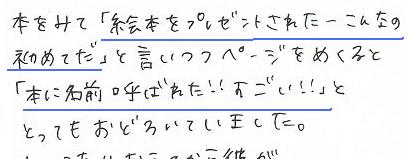 本をみて「絵本をプレゼントされたーこんなの
初めてだ」と言いつつページをめくると
「本に名前呼ばれた!!すごい!!」と
とってもおどろいていました。